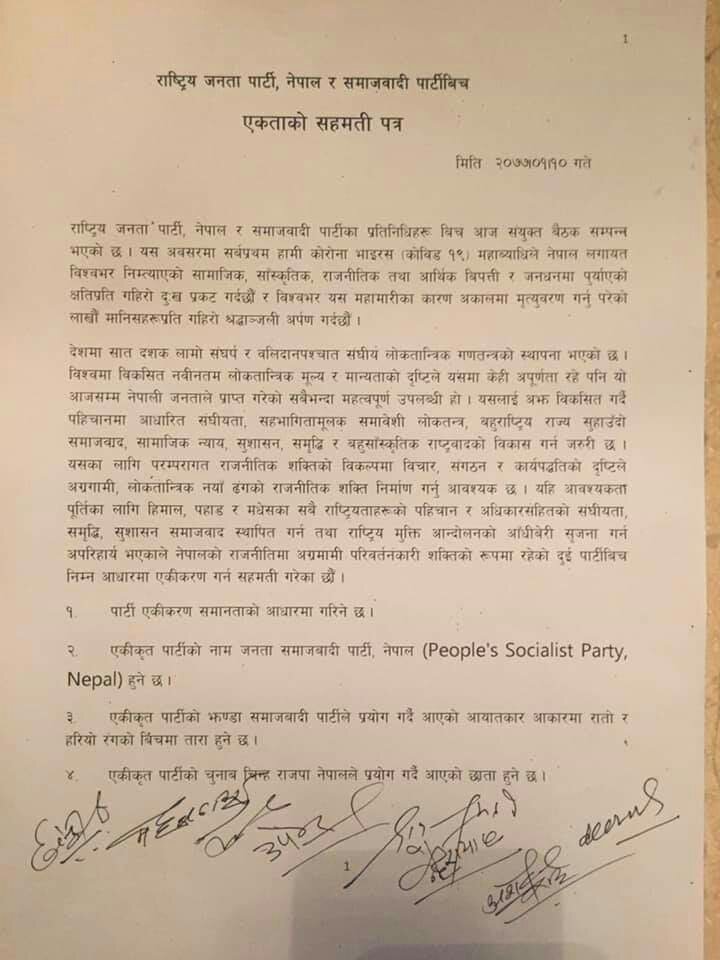 1
राष्ट्रिय जनता पार्टी, नेपाल र समाजवादी पार्टीबिच
एकताको सहमती पत्र
मिति २०७७०१।१० गते
राष्ट्रिय जनता पार्टी, नेपाल र समाजवादी पार्टीका प्रतिनिधिहरू बिच आज संयुक्त बैठक सम्पन्न
भएको छ । यस अवसरमा सर्वप्रथम हामी कोरोना भाइरस (कोविड १९) महाव्याधिले नेपाल लगायत
विश्वभर निम्त्याएको सामाजिक, साँस्कृतिक, राजनीतिक तथा आर्थिक विपत्ती र जनधनमा पुर्याएको
क्षतिप्रति गहिरो दुःख प्रकट गर्दछौं र विश्वभर यस महामारीका कारण अकालमा मृत्युवरण गर्नु परेको
लाखौं मानिसहरूप्रति गहिरो श्रद्धाञ्जली अर्पण गर्दछौं ।
देशमा सात दशक लामो संघर्ष र वलिदानपश्चात संघीय लोकतान्त्रिक गणतन्त्रको स्थापना भएको छ ।
विश्वमा विकसित नवीनतम लोकतान्त्रिक मूल्य र मान्यताको दृष्टिले यसमा केही अपूर्णता रहे पनि यो
आजसम्म नेपाली जनताले प्राप्त गरेको सबैभन्दा महत्वपूर्ण उपलब्धी हो । यसलाई अझ विकसित गर्दै
पहिचानमा आधारित संघीयता, सहभागितामूलक समावेशी लोकतन्त्र, बहुराष्ट्रिय राज्य सुहाउँदो
समाजवाद, सामाजिक न्याय, सुशासन, समृद्धि र बहुसाँस्कृतिक राष्ट्रवादको विकास गर्न जरुरी छ ।
यसका लागि परम्परागत राजनीतिक शक्तिको विकल्पमा विचार, संगठन र कार्यपद्धतिको दृष्टिले
अग्रगामी, लोकतान्त्रिक नयाँ ढंगको राजनीतिक शक्ति निर्माण गर्नु आवश्यक छ । यहि आवश्यकता
पूर्तिका लागि हिमाल, पहाड र मधेसका सबै राष्ट्रियताहरूको पहिचान र अधिकारसंहितको संघीयता,
समृद्धि, सुशासन समाजवाद स्थापित गर्न तथा राष्ट्रिय मुक्ति आन्दोलनको आँधीबेरी सृजना गर्न
अपरिहार्य भएकाले नेपालको राजनीतिमा अग्रमामी परिवर्तनकारी शक्तिको रूपमा रहेको दुई पार्टीबिच
निम्न आधारमा एकीकरण गर्न सहमती गरेका छौं ।
१. पार्टी एकीकरण समानताको आधारमा गरिने छ ।
२. एकीकृत पार्टीको नाम जनता समाजबादी पार्टी, नेपाल (People's Socialist Party,
Nepal) हुने छ ।
३. एकीकृत पार्टीको झण्डा समाजबादी पार्टीले प्रयोग गर्दै आएको आयातकार आकारमा रातो र
हरियो रंगको बिंचमा तारा हुने छ ।
४. एकीकृत पार्टीको चुनाब चिन्ह राजपा नेपालले प्रयोग गर्दै आएको छाता हुने छ ।
1